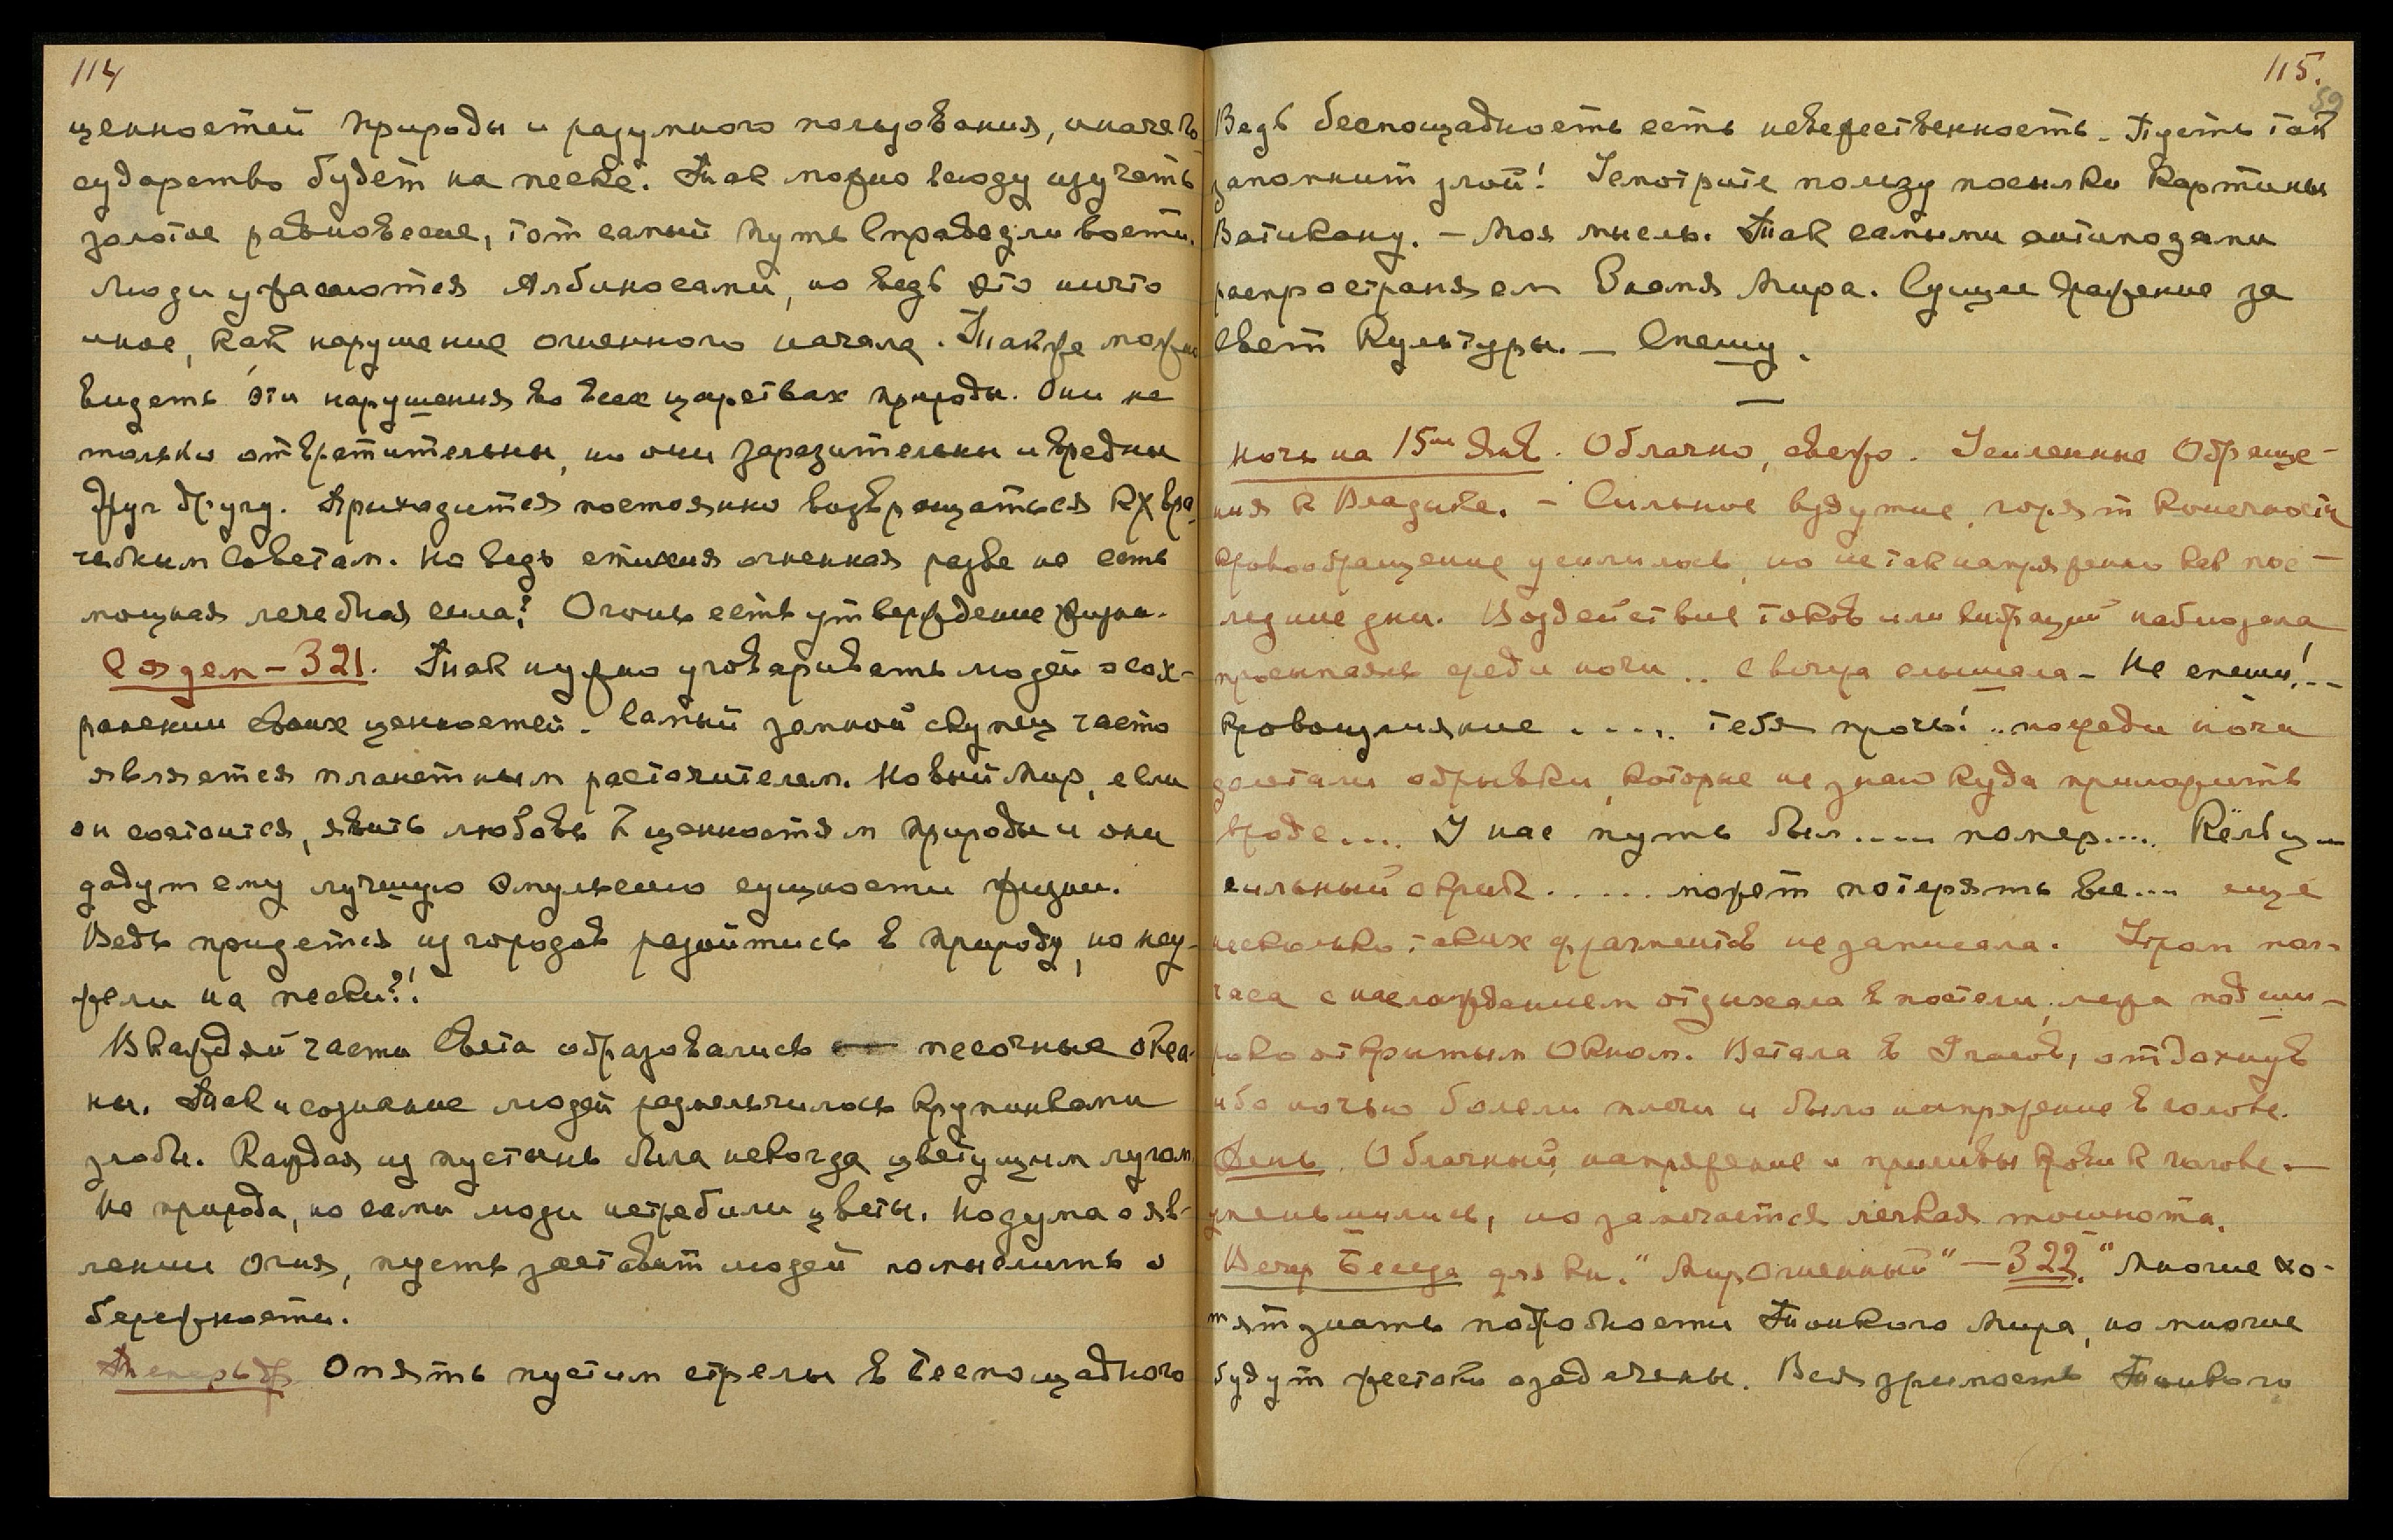 114
ценностей Природы и разумного пользования, иначе го
сударство будет на песке. Так можно всюду изучать
золотое равновесие, тот самый Путь Справедливости.
Люди ужасаются Альбиносами, но ведь это ничто
иное, как нарушение огненного начала. Также можно
видеть эти нарушения во всех царствах природы. Они не
только отвратительны, но они заразительны и вредны
друг другу. Приходится постоянно возвращаться к вра
чебным Советам. Но ведь стихия огненная разве не есть
мощная лечебная сила? Огонь есть утверждение жизни.
Создем – 321. Так нужно уговаривать людей о сох-
ранении своих ценностей. Самый земной скупец часто
является планетным расточителем. Новый Мир, если
он состоится, явить любовь к ценностям Природы и они
дадут ему лучшую Эмульсию сущности жизни.
Ведь придется из городов разойтись в Природу, но неу-
жели на пески?!
В каждой части Света образовались песочные океа-
ны. Так и сознание людей размельчилось крупинками
злобы. Каждая из пустынь была некогда цветущим лугом
Не природа, но сами люди истребили цветы. Но дума о яв-
лении огня, пусть заставит людей помыслить о
бережности.
Опять пустим стрелы в беспощадного
115.
59
Ведь беспощадность есть невежественность. Пусть так
запомнит злой! Усмотрите пользу посылки Картины
Ватикану. – Моя мысль. Так самыми антиподами
распространяем Знамя Мира. Сущее Сражение за
Свет Культуры. – Спешу.
—
Ночь на 15ое Янв. Облачно, свежо. Усиленные Обраще-
ния к Владыке. – Сильное вздутие, горят конечности
кровообращение усилилось, но не так напряженно как пос-
ледние дни. Воздействие токов или вибраций наблюдала
просыпаясь среди ночи .. с вечера слышала – Не спеши!..
Кровоизлияние ..... тебя прочь! .. посреди ночи
долетали обрывки, которые не знаю куда приложить
вроде.... У нас путь был .... номер....
сильный охрип ..... может потерять все... еще
несколько таких фрагментов не записала. Утром пол-
часа с наслаждением отдыхала в постели, лежа под ши-
роко открытым окном. Встала в 7 часов, отдохнув
ибо ночью болели плечи и было напряжение в голове.
День. Облачный, напряжение и приливы крови к голове –
уменьшились, но замечается легкая тошнота.
Вечер Беседа для кн. "Мир Огненный" – 322. "Многие хо-
тят знать подробности Тонкого Мира, но многие
будут жестоко озадачены. Вся зримость Тонкого